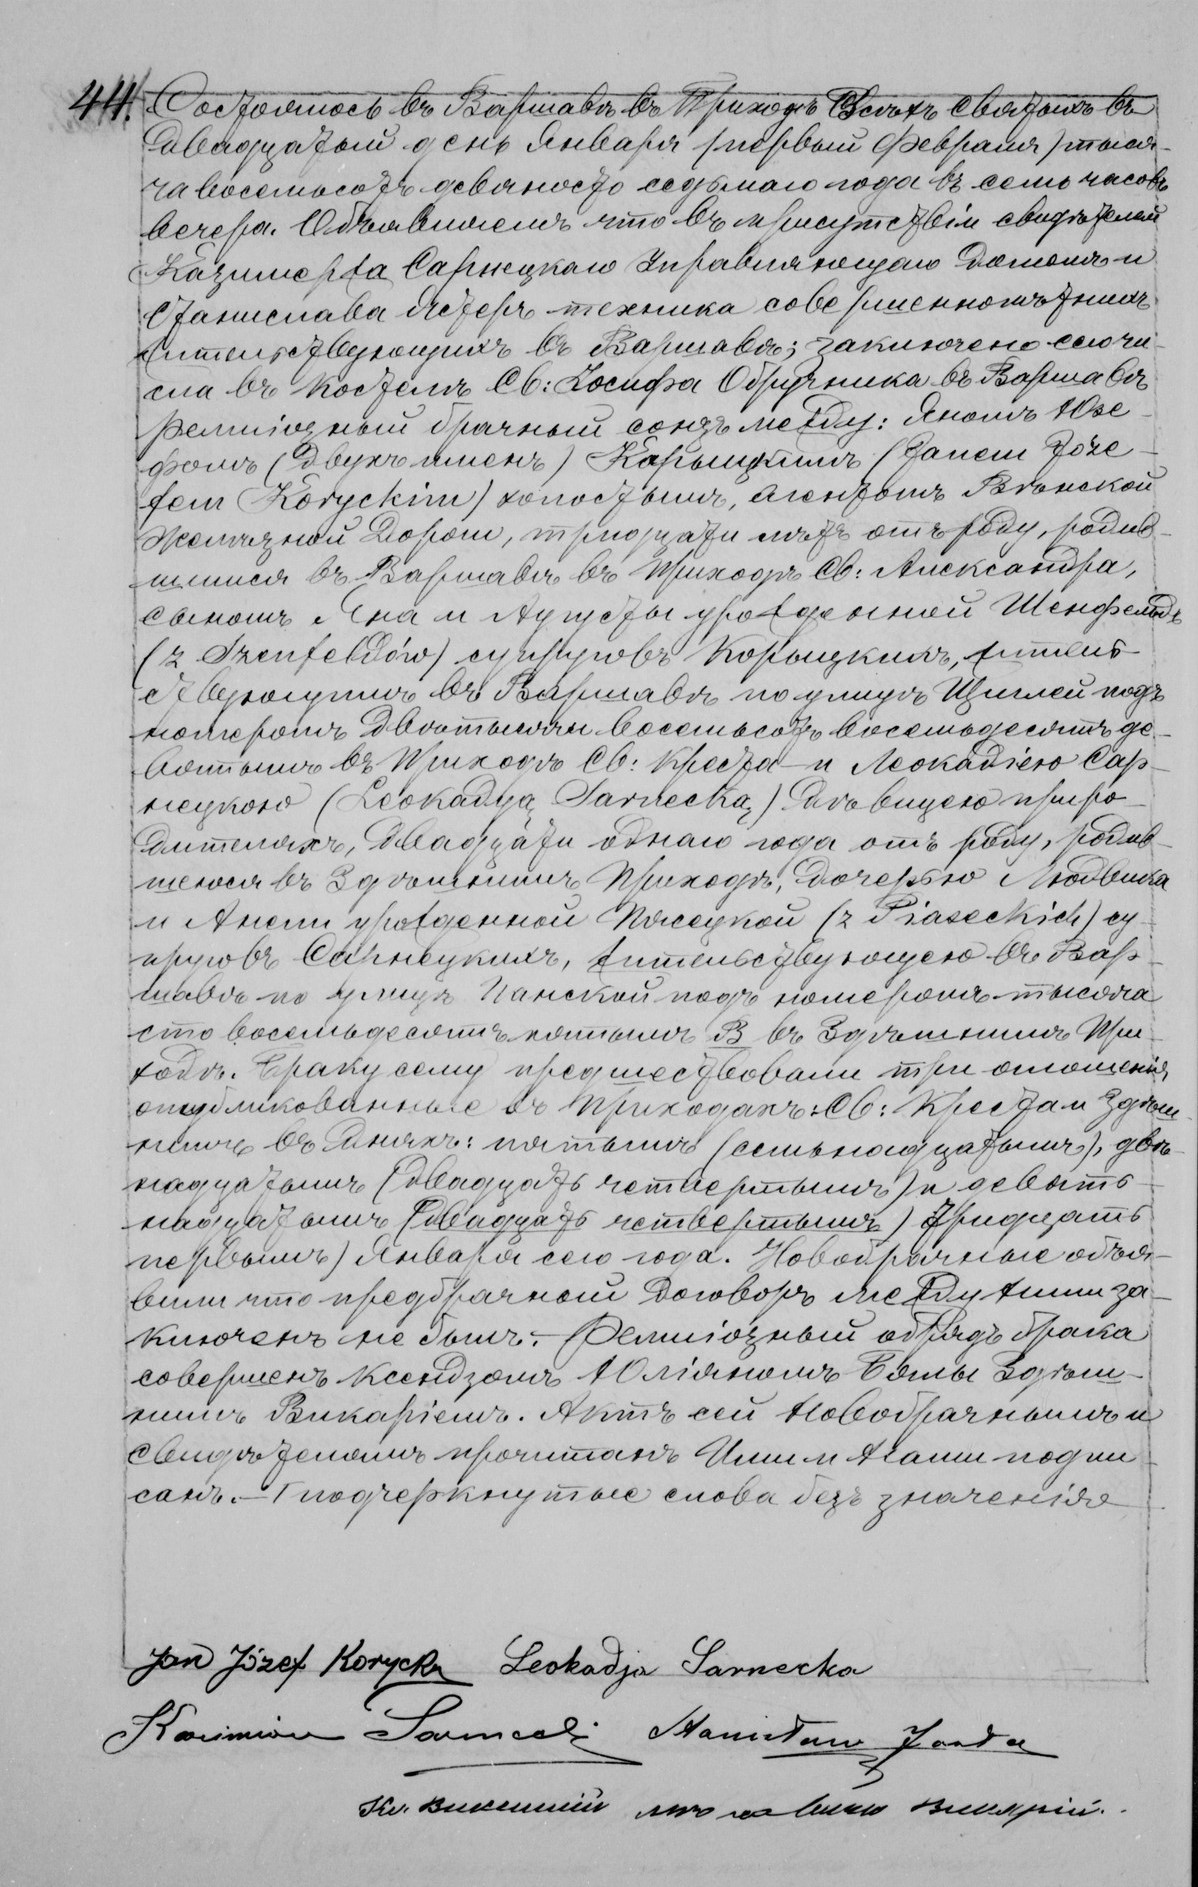 44. Состоялось въ Варшавѣ въ Приходѣ Всѣхъ Святыхъ въ
двадцатый день Января (первый Февраля) тыся-
ча восемьсотъ девяносто седьмаго года въ семь часовъ
вечера. Объявляемъ что въ присутствіи свидѣтелей
Казимержа Сарнецкаго Управляющаго Домомъ и
Станислава техника совершеннолѣтнихъ
жительствующихъ въ Варшавѣ; заключено сего чи-
сла въ Костелѣ Св: Іосифа Обручника въ Варшавѣ
религіозный брачный союзъ между: Яномъ Юзе-
фомъ (двухъ именъ) Корыцкимъ (Janem Józe-
fem Koryckim) холостымъ, агентомъ Вѣнской
Желѣзной Дороги, тридцати лѣтъ отъ роду, родив-
шимся въ Варшавѣ въ Приходѣ Св: Александра,
сыномъ Яна и Аугусты урожденной Шенфельдъ
(z Szenfeldów) супруговъ Корыцкихъ, житель-
ствующимъ въ Варшавѣ по улицѣ Щиглей подъ
номеромъ двѣ тысячи восемьсотъ восемьдесятъ де-
вятымъ въ Приходѣ Св: Креста – и Леокадіею Сар-
нецкою (Leokadyą Sarnecką) дѣвицею при ро-
дителяхъ, двадцати одного года отъ роду, родив-
шеюся въ здѣшнимъ Приходѣ, дочерью Людвика
и Анели урожденной Пясецкой (z Piaseckich) су-
пруговъ Сарнецкихъ, жительствующею въ Вар-
шавѣ по улицѣ Панской подъ номеромъ тысяча
сто восемьдесятъ пятымъ В въ здѣшнимъ При-
ходѣ. Браку сему предшествовали три оглашенія
опубликованные въ Приходахъ: Св: Креста и Здѣш-
немъ въ дняхъ: пятымъ (семьнадцатымъ), двѣ-
надцатымъ (двадцать четвертымъ) и девять-
надцатымъ (двадцать четвертымъ) тридцать
первымъ) Января сего года. Новобрачные объя-
вили что предбрачный договоръ между ними за-
ключенъ не былъ. – Религіозный обрядъ брака
совершенъ Ксендзомъ Юліяномъ Бялы Здѣш-
нимъ Викаріемъ. Актъ сей Новобрачнымъ и
свидѣтелямъ прочитанъ Ими и Нами подпи-
санъ. – подчеркнутые слова безъ значенія
Jan Józef Korycki Leokadja Sarnecka
Kazimierz Sarnecki Stanisław
Кс. Викарій.